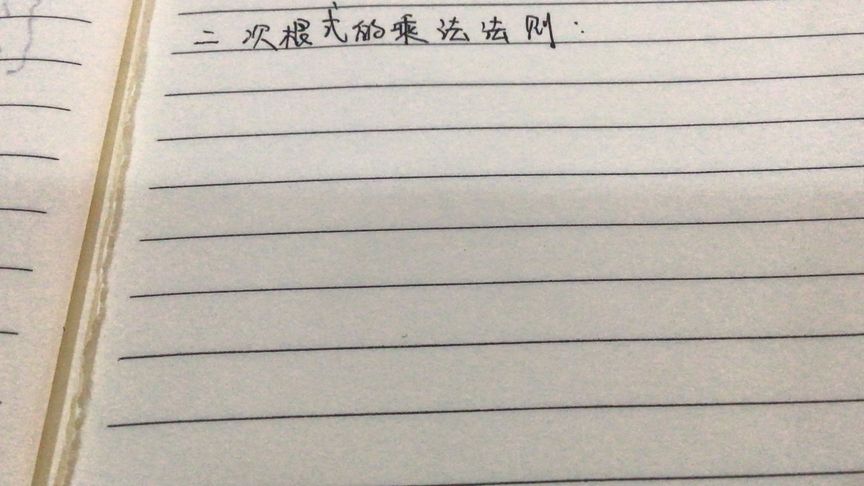 二次根式的乘法法则：